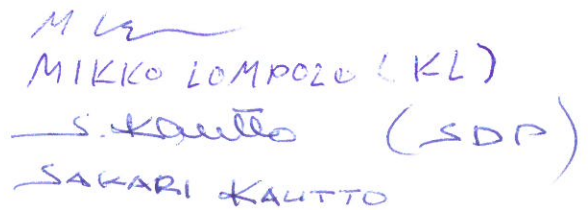 MIKKO LOMPOLO (KL)
S. Kautto (SDP)
SAKARI KAUTTO